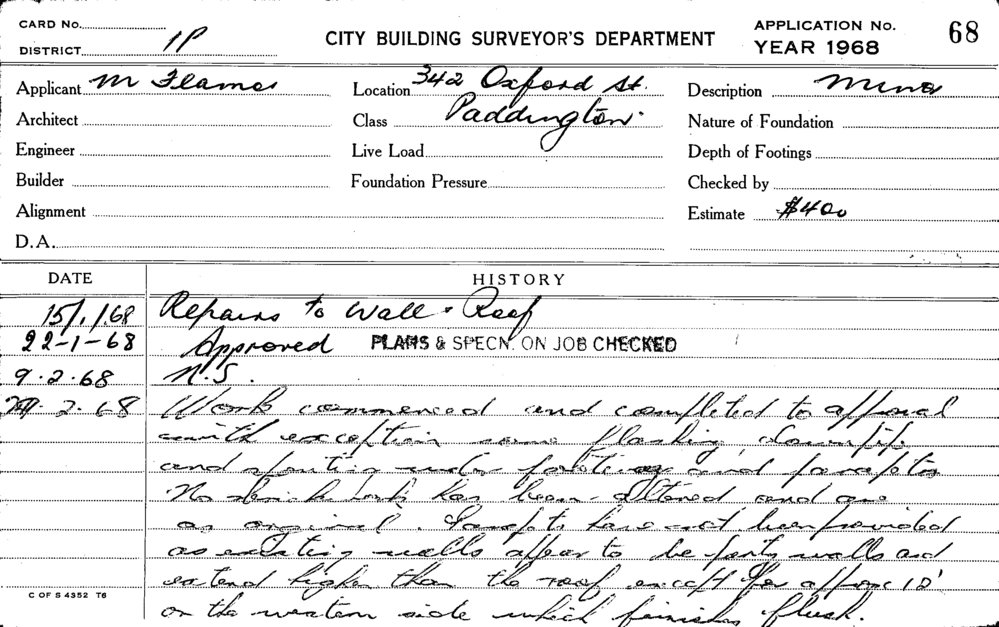 CARD No.
DISTRICT 1P
CITY BUILDING SURVEYOR'S DEPARTMENT
APPLICATION No. 68
YEAR 1968
Applicant M Flamos
Location 342 Oxford St.
Paddington.
Description Minor
Architect
Class
Nature of Foundation
Engineer
Live Load
Depth of Footings
Builder
Foundation Pressure
Checked by
Alignment
Estimate $400
D.A.
DATE HISTORY
15/1/68 Repairs to Wall & Roof
22-1-68 Approved PLANS & SPECN. ON JOB CHECKED
9.2.68 N.S.
2.68 Work commenced and completed to approval
with exception some flashing downpipe
and spouting under and parapets
No brick work has been altered and are
as original. Parapets have not been provided
as existing walls appear to be party walls and
extend higher than the roof except for approx 18'
on the western side which finishes flush.
C OF S 4352 T6